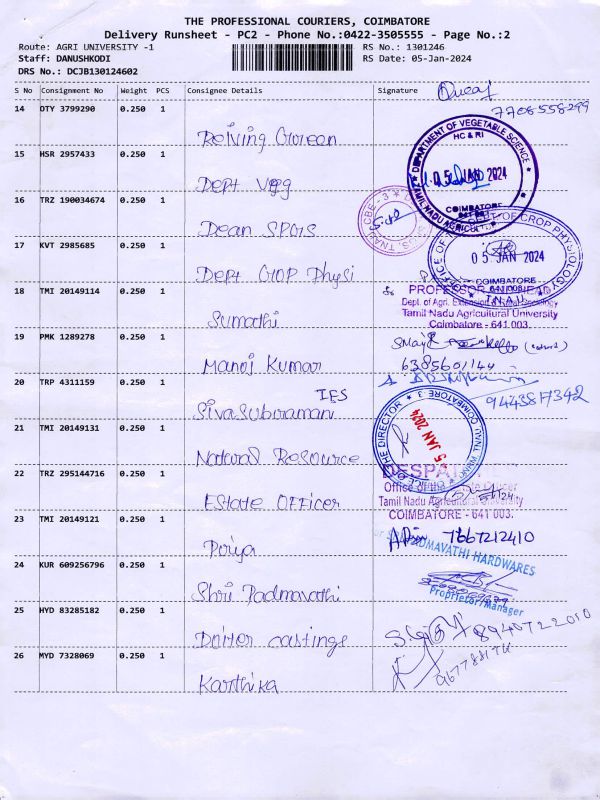 THE PROFESSIONAL COURIERS, COIMBATORE
Delivery Runsheet - PC2 - Phone No.:0422-3505555 - Page No.:2
Route: AGRI UNIVERSITY -1
RS No.: 1301246
Staff: DANUSHKODI
RS Date: 05-Jan-2024
DRS No.: DCJB130124602
S No Consignment No Weight PCS Consignee Details Signature
7708558299
14 DTY 3799290 0.250 1
15 HSR 2957433 0.250 1
DEPARTMENT OF VEGETABLE SCIENCE
HC & RI
05 JAN 2024
COIMBATORE
TAMIL NADU AGRICULTURAL
Dept Veg
16 TRZ 190034674 0.250 1
Dean SPGS
17 KVT 2985685 0.250 1
DEPT OF CROP PHYSIOLOGY
05 JAN 2024
COIMBATORE
641 003
TNAU
Dept Crop Physi
18 TMI 20149114 0.250 1
PROFESSOR AND HEAD
Dept. of Agri. Extension & Rural Sociology
Tamil Nadu Agricultural University
Coimbatore - 641 003.
Sumathi
19 PMK 1289278 0.250 1
Manoj Kumar
6385601144
20 TRP 4311159 0.250 1
IFS
Sivasubiraman
9443817342
21 TMI 20149131 0.250 1
OFFICE OF THE DIRECTOR
COIMBATORE 3
5 JAN 2024
Natural Resource
22 TRZ 295144716 0.250 1
DESPATCHED
Office of the Estate Officer
Tamil Nadu Agricultural University
COIMBATORE - 641 003.
Estate Officer
23 TMI 20149121 0.250 1
7667212410
Poiya
24 KUR 609256796 0.250 1
For SHRI PADMAVATHI HARDWARES
Proprietor/Manager
Shri Padmavathi
25 HYD 83285182 0.250 1
8940722010
Doiter castings
26 MYD 7328069 0.250 1
Karthika